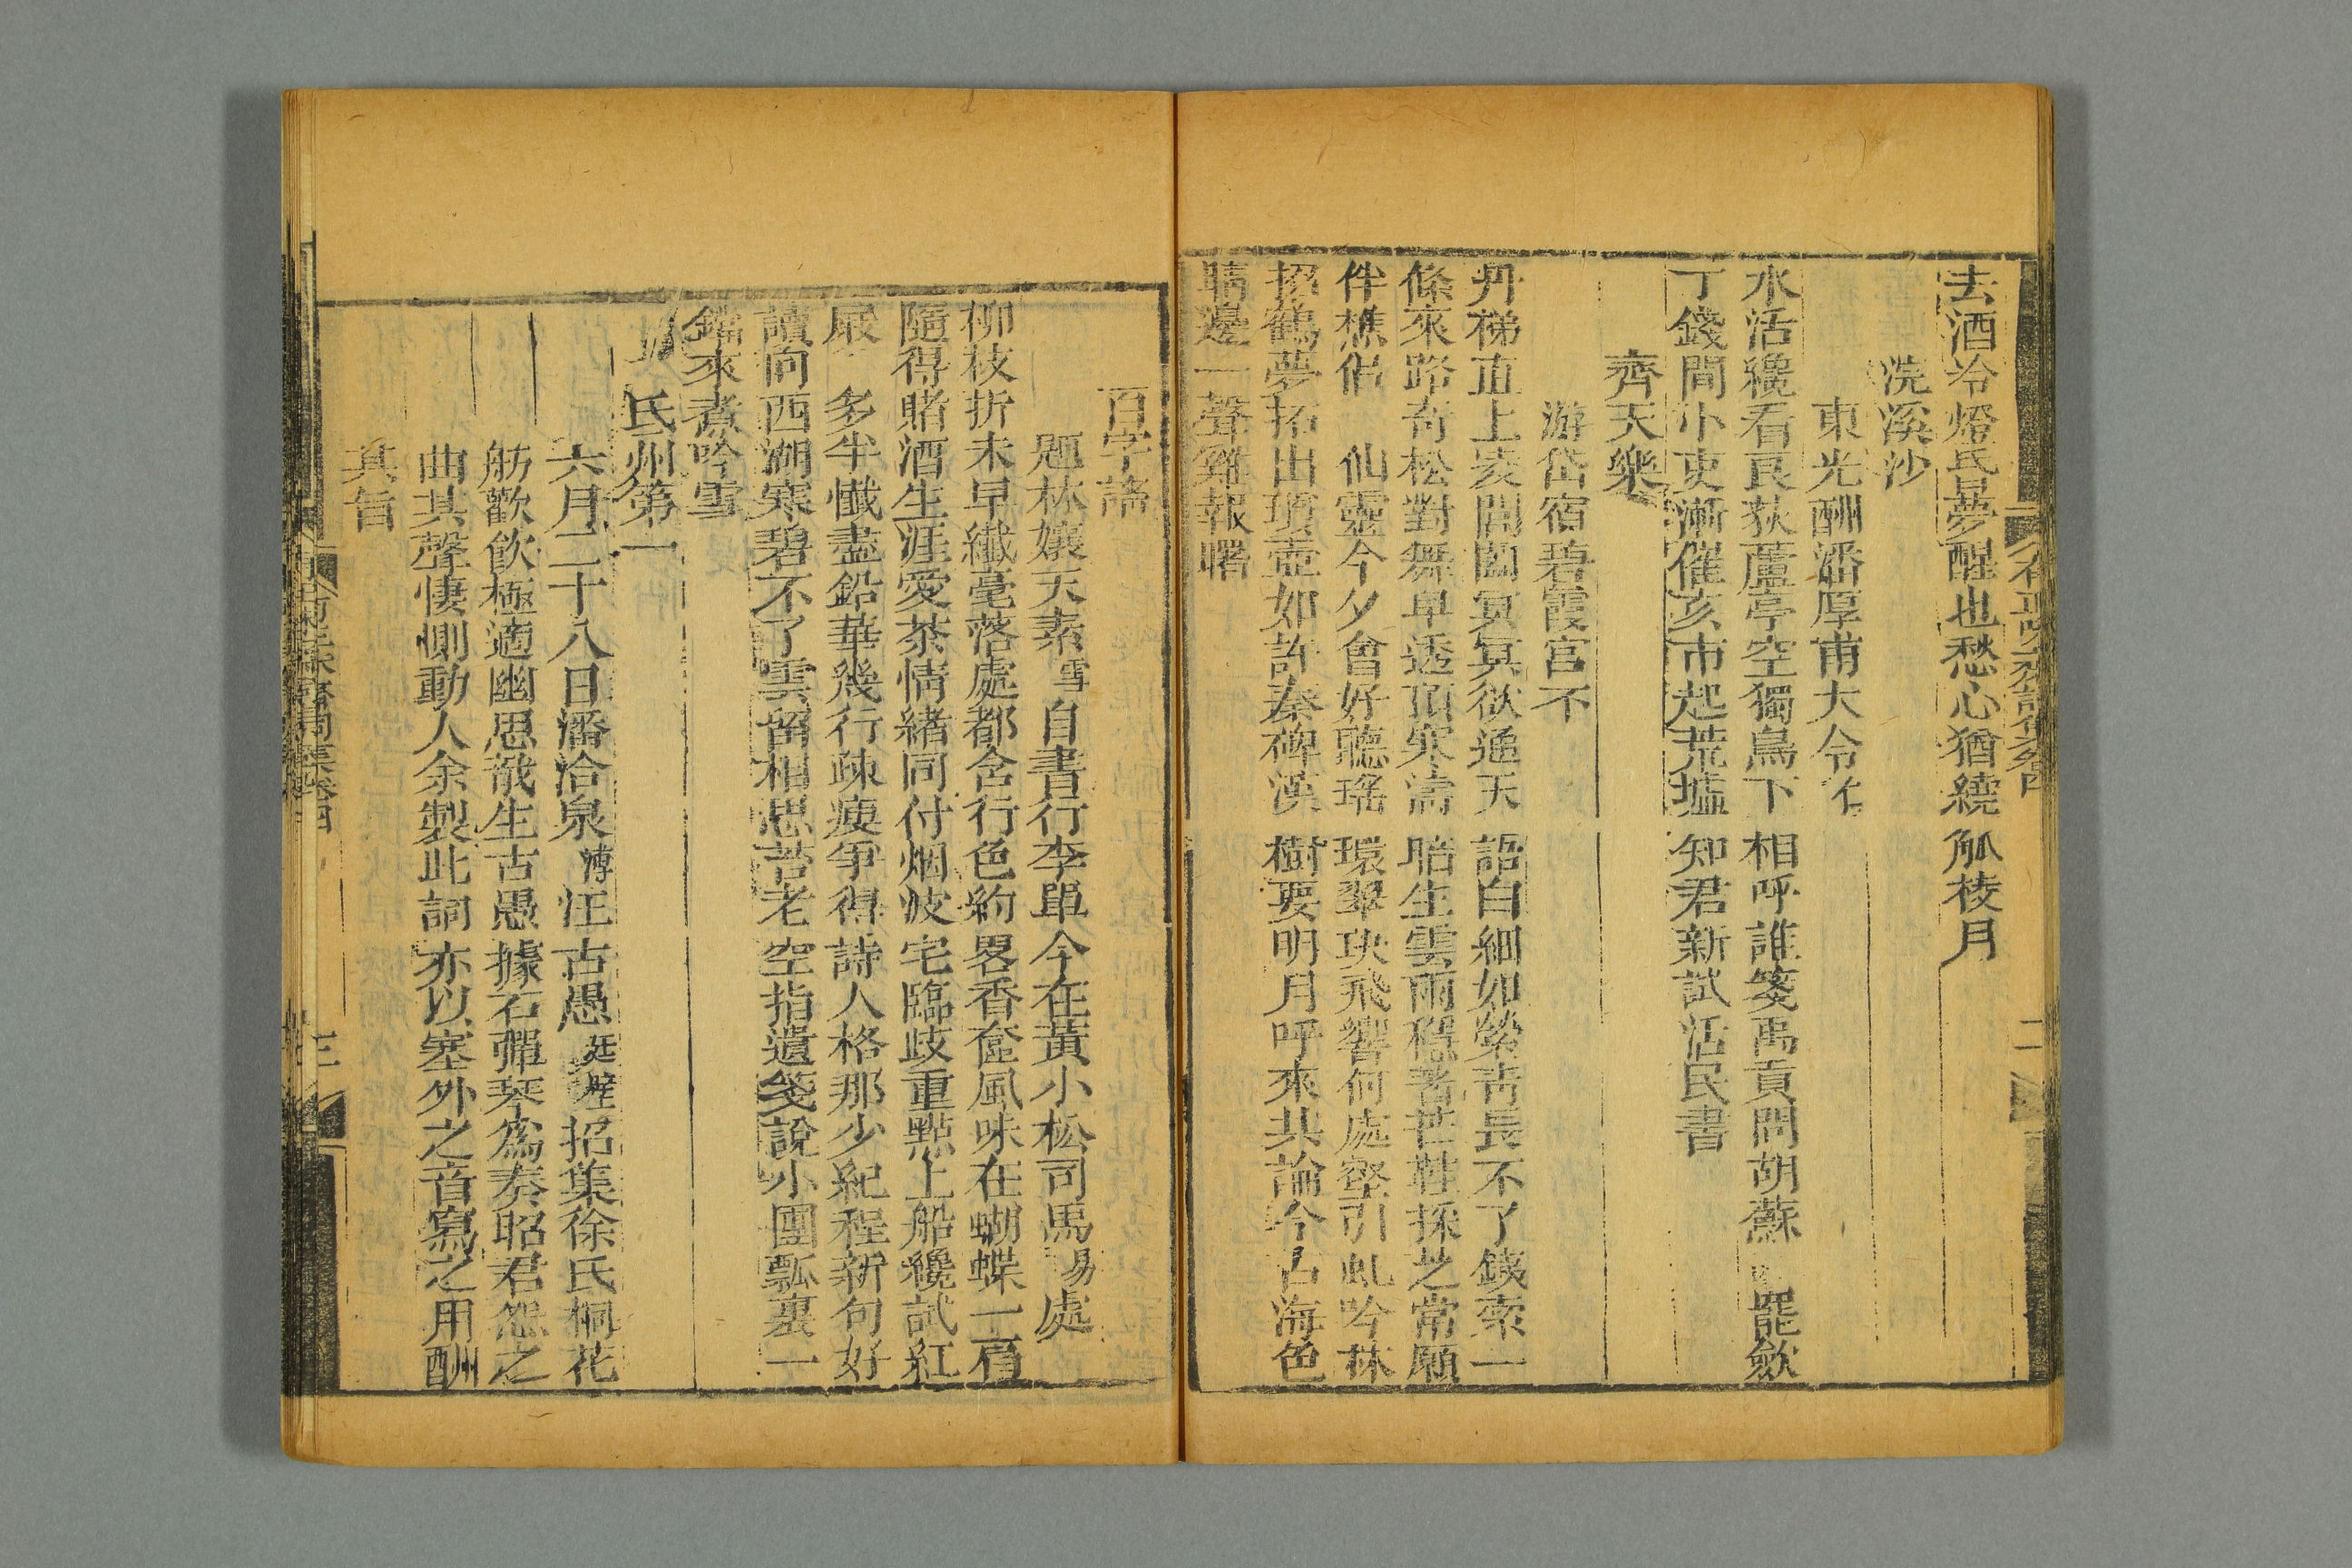 去酒冷燈昏夢醒也愁心猶繞觚棱月
浣溪沙
東光酬潘厚甫大令
水活纔看艮荻蘆亭空獨鳥下相呼誰箋禹貢問胡蘇 罷歛
丁錢閒小吏漸催亥市起荒墟知君新試活民書
齊天樂
游岱宿碧霞宮不
丹梯直上裴閶闔冥冥欲通天語白細如縈靑長不了錢索一
條來路奇松對舞早透頂寒濤暗生雲雨穩著芒鞋採芝常願
伴樵侶 仙靈今夕會好聽瑤環翠玦飛響何處壑引虬吟林
招鶴夢拓出瓊壺如許秦碑漢樹要明月呼來共論今古海色
晴邊一聲雞報曙
百字謠
題林孃天素雪自書行李單今在黃小松司馬易處
柳枝折未早纖毫落處都含行色約畧香奩風味在蝴蝶一肩
隨得賭酒生涯愛茶情緒同付烟波宅臨歧重點上船纔試紅
屐 多半懺盡鉛華幾行疎瘦爭得詩人格那少紀程新句好
讀向西湖寒碧不了雲留相思苦老空指遺箋說小團瓢裏一
鐺來煮吟雪
氏州第一
六月二十八日潘洽泉溥汪古愚廷璧招集徐氏桐花
舫歡飲極適幽思哉生古愚據石彈琴爲奏昭君怨之
曲其聲悽惻動人余製此詞亦以塞外之音寫之用酬
其旨
三